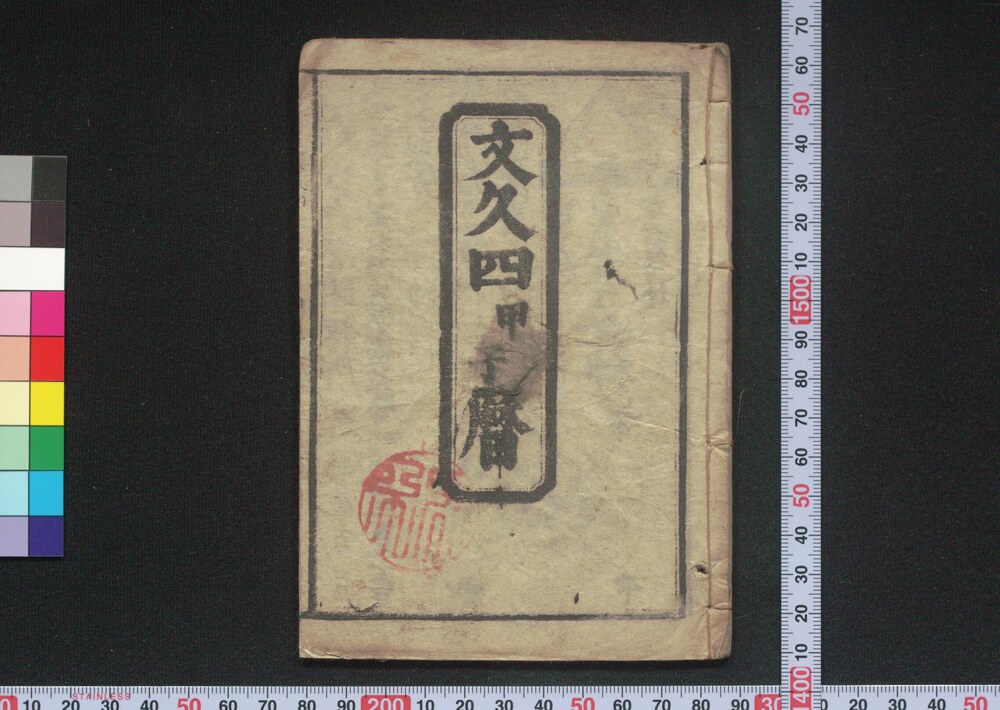 文久四甲子暦
70
60
50
40
30
20
10
1500
90
80
70
60
50
40
30
20
10
1400
STAINLESS
10 20 30 40 50 60 70 80 90 200 10 20 30 40 50 60 70 80 90 10 20 30 40 50